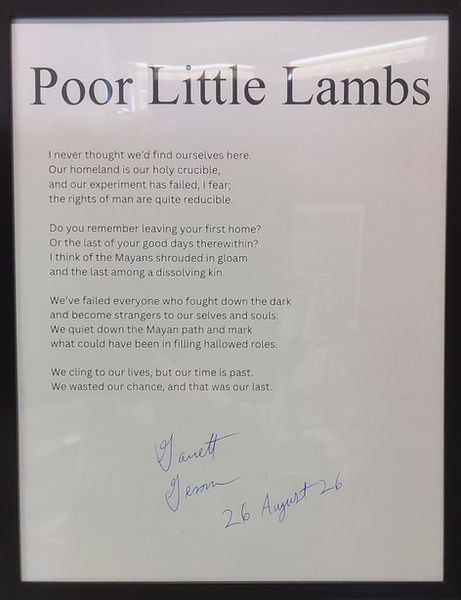 Poor Little Lambs
I never thought we'd find ourselves here.
Our homeland is our holy crucible,
and our experiment has failed, I fear;
the rights of man are quite reducible.
Do you remember leaving your first home?
Or the last of your good days therewithin?
I think of the Mayans shrouded in gloam
and the last among a dissolving kin.
We've failed everyone who fought down the dark
and become strangers to our selves and souls.
We quiet down the Mayan path and mark
what could have been in filling hallowed roles.
We cling to our lives, but our time is past.
We wasted our chance, and that was our last.
Garrett
26 August 26